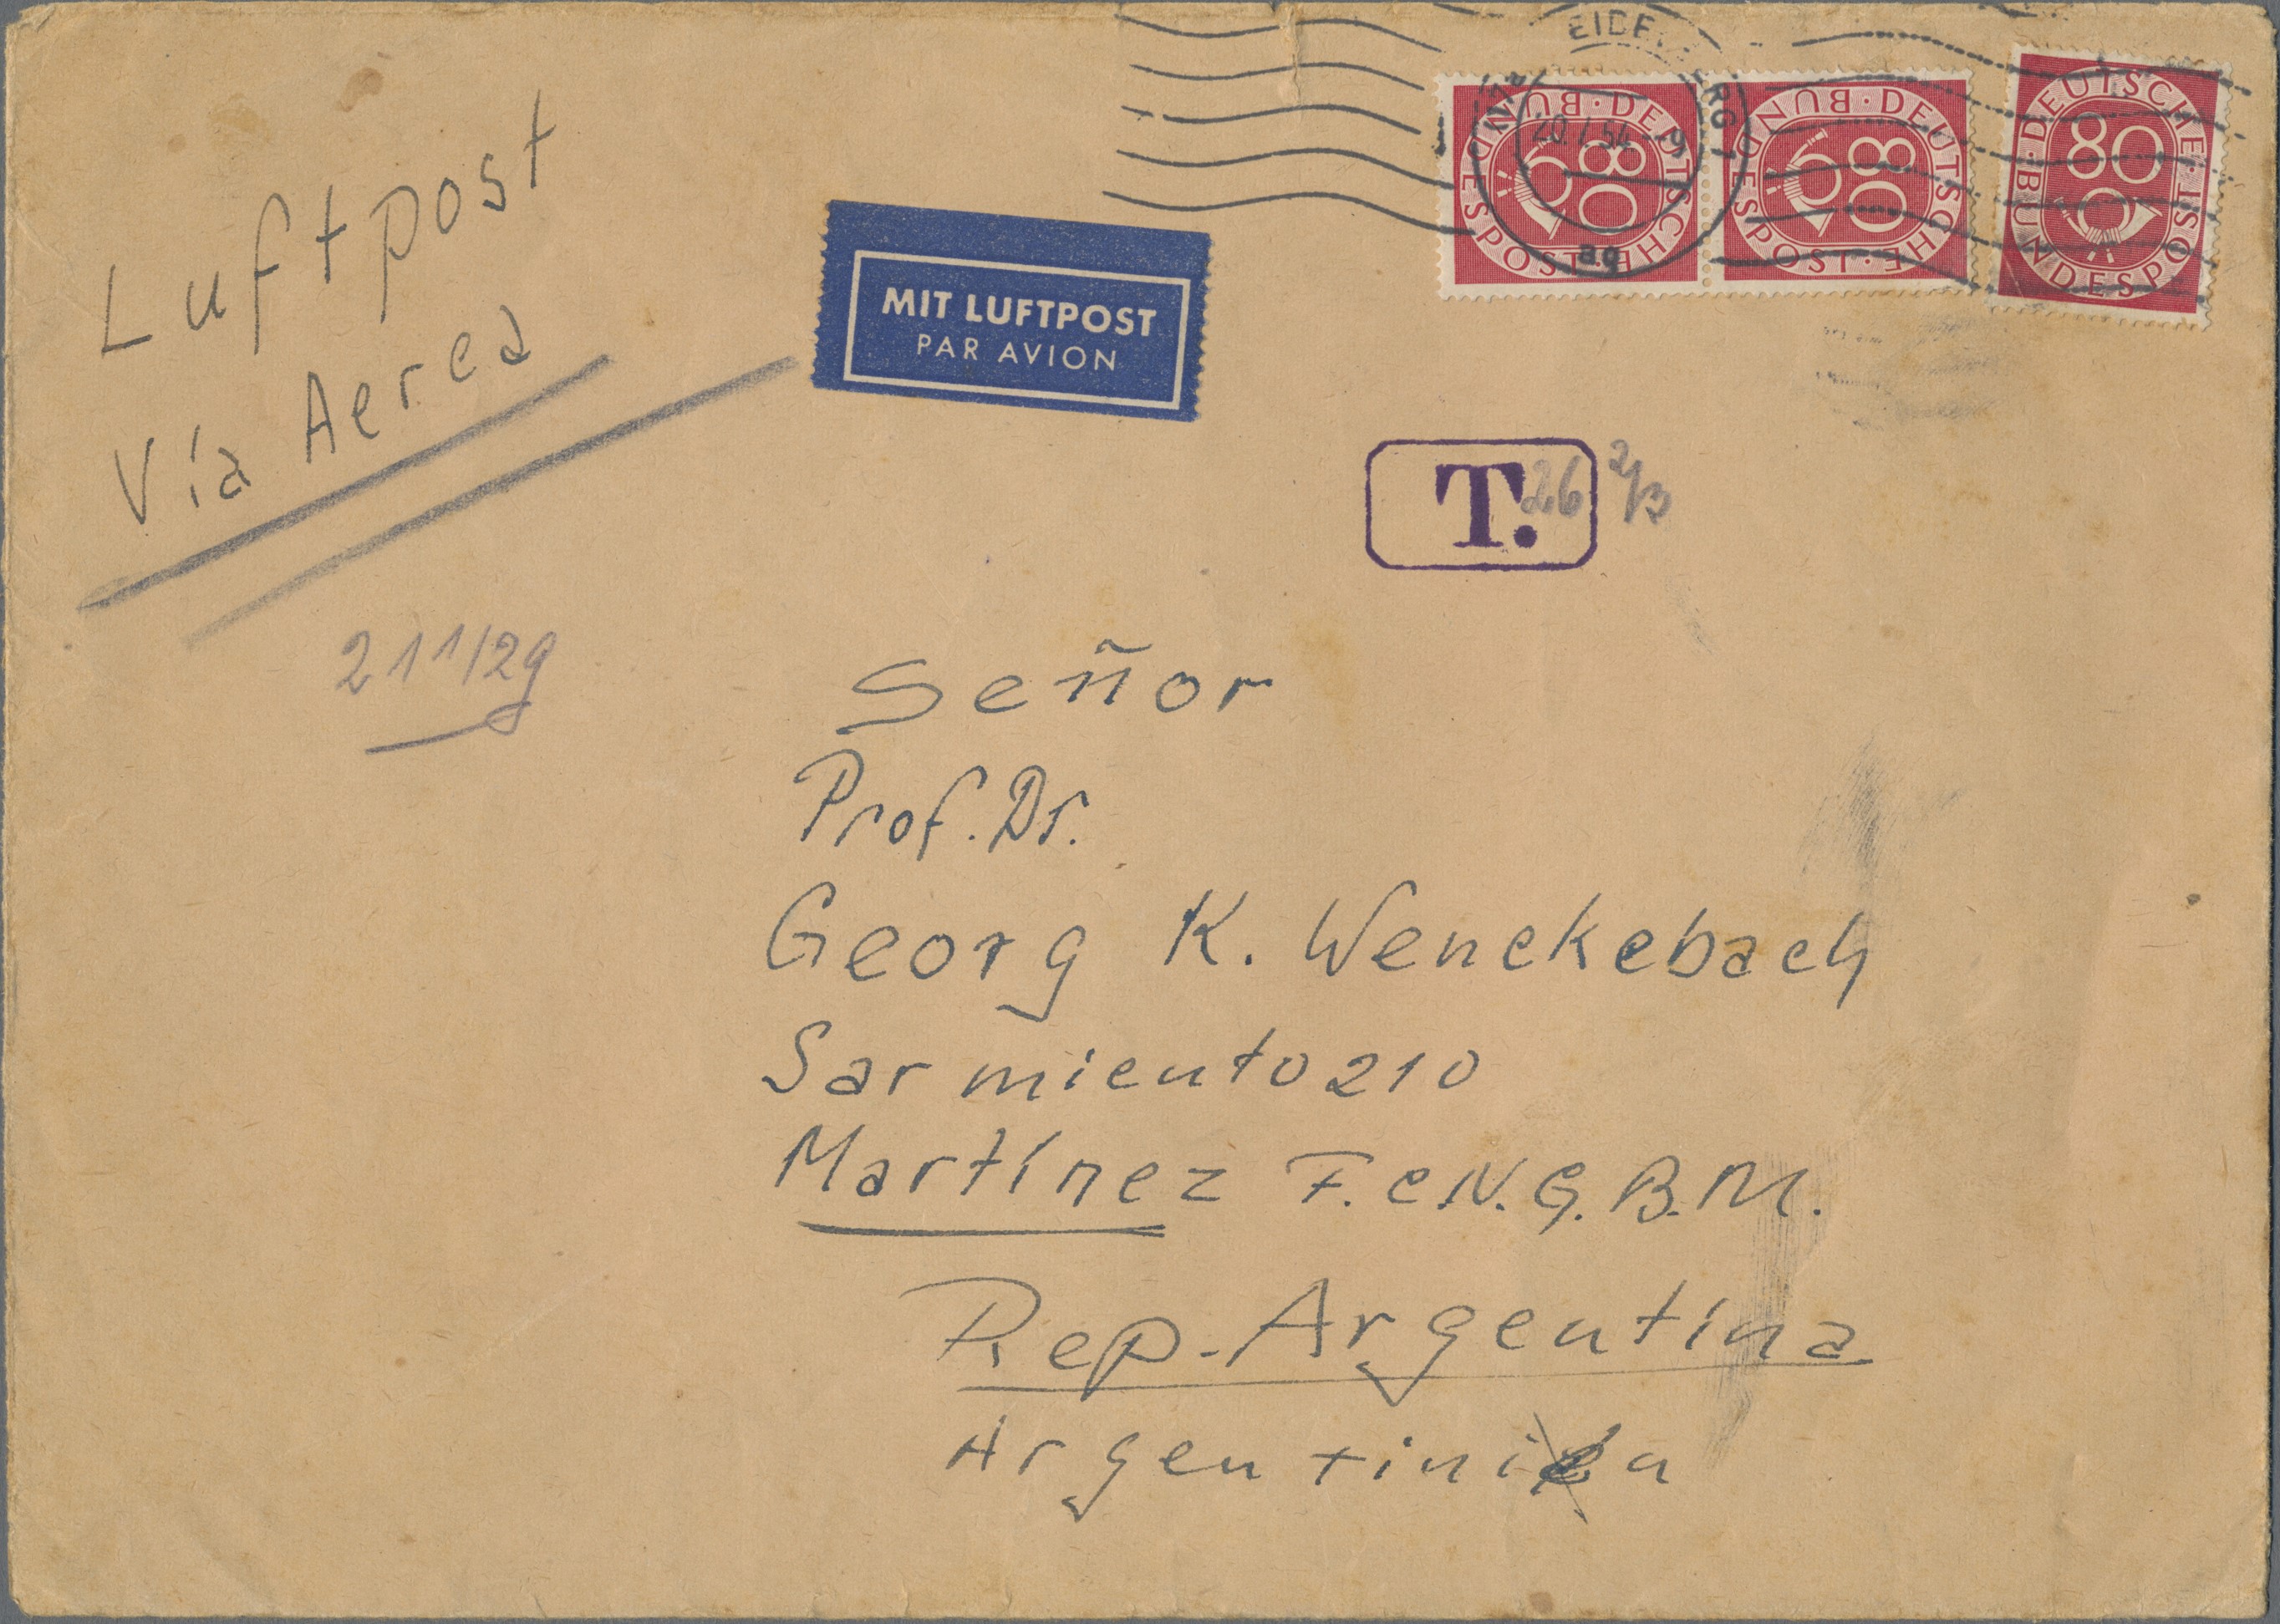 Luftpost
Vía Aerea
MIT LUFTPOST
PAR AVION
20.7.54
ag
DEUTSCHE BUNDESPOST
80
DEUTSCHE BUNDESPOST
80
DEUTSCHE BUNDESPOST
80
T. 26 2/3
211/29
Señor
Prof. Dr.
Georg K. Wenckebach
Sarmiento 210
Martínez F.C.N.G.B.M.
Rep. Argentina
Argentinien